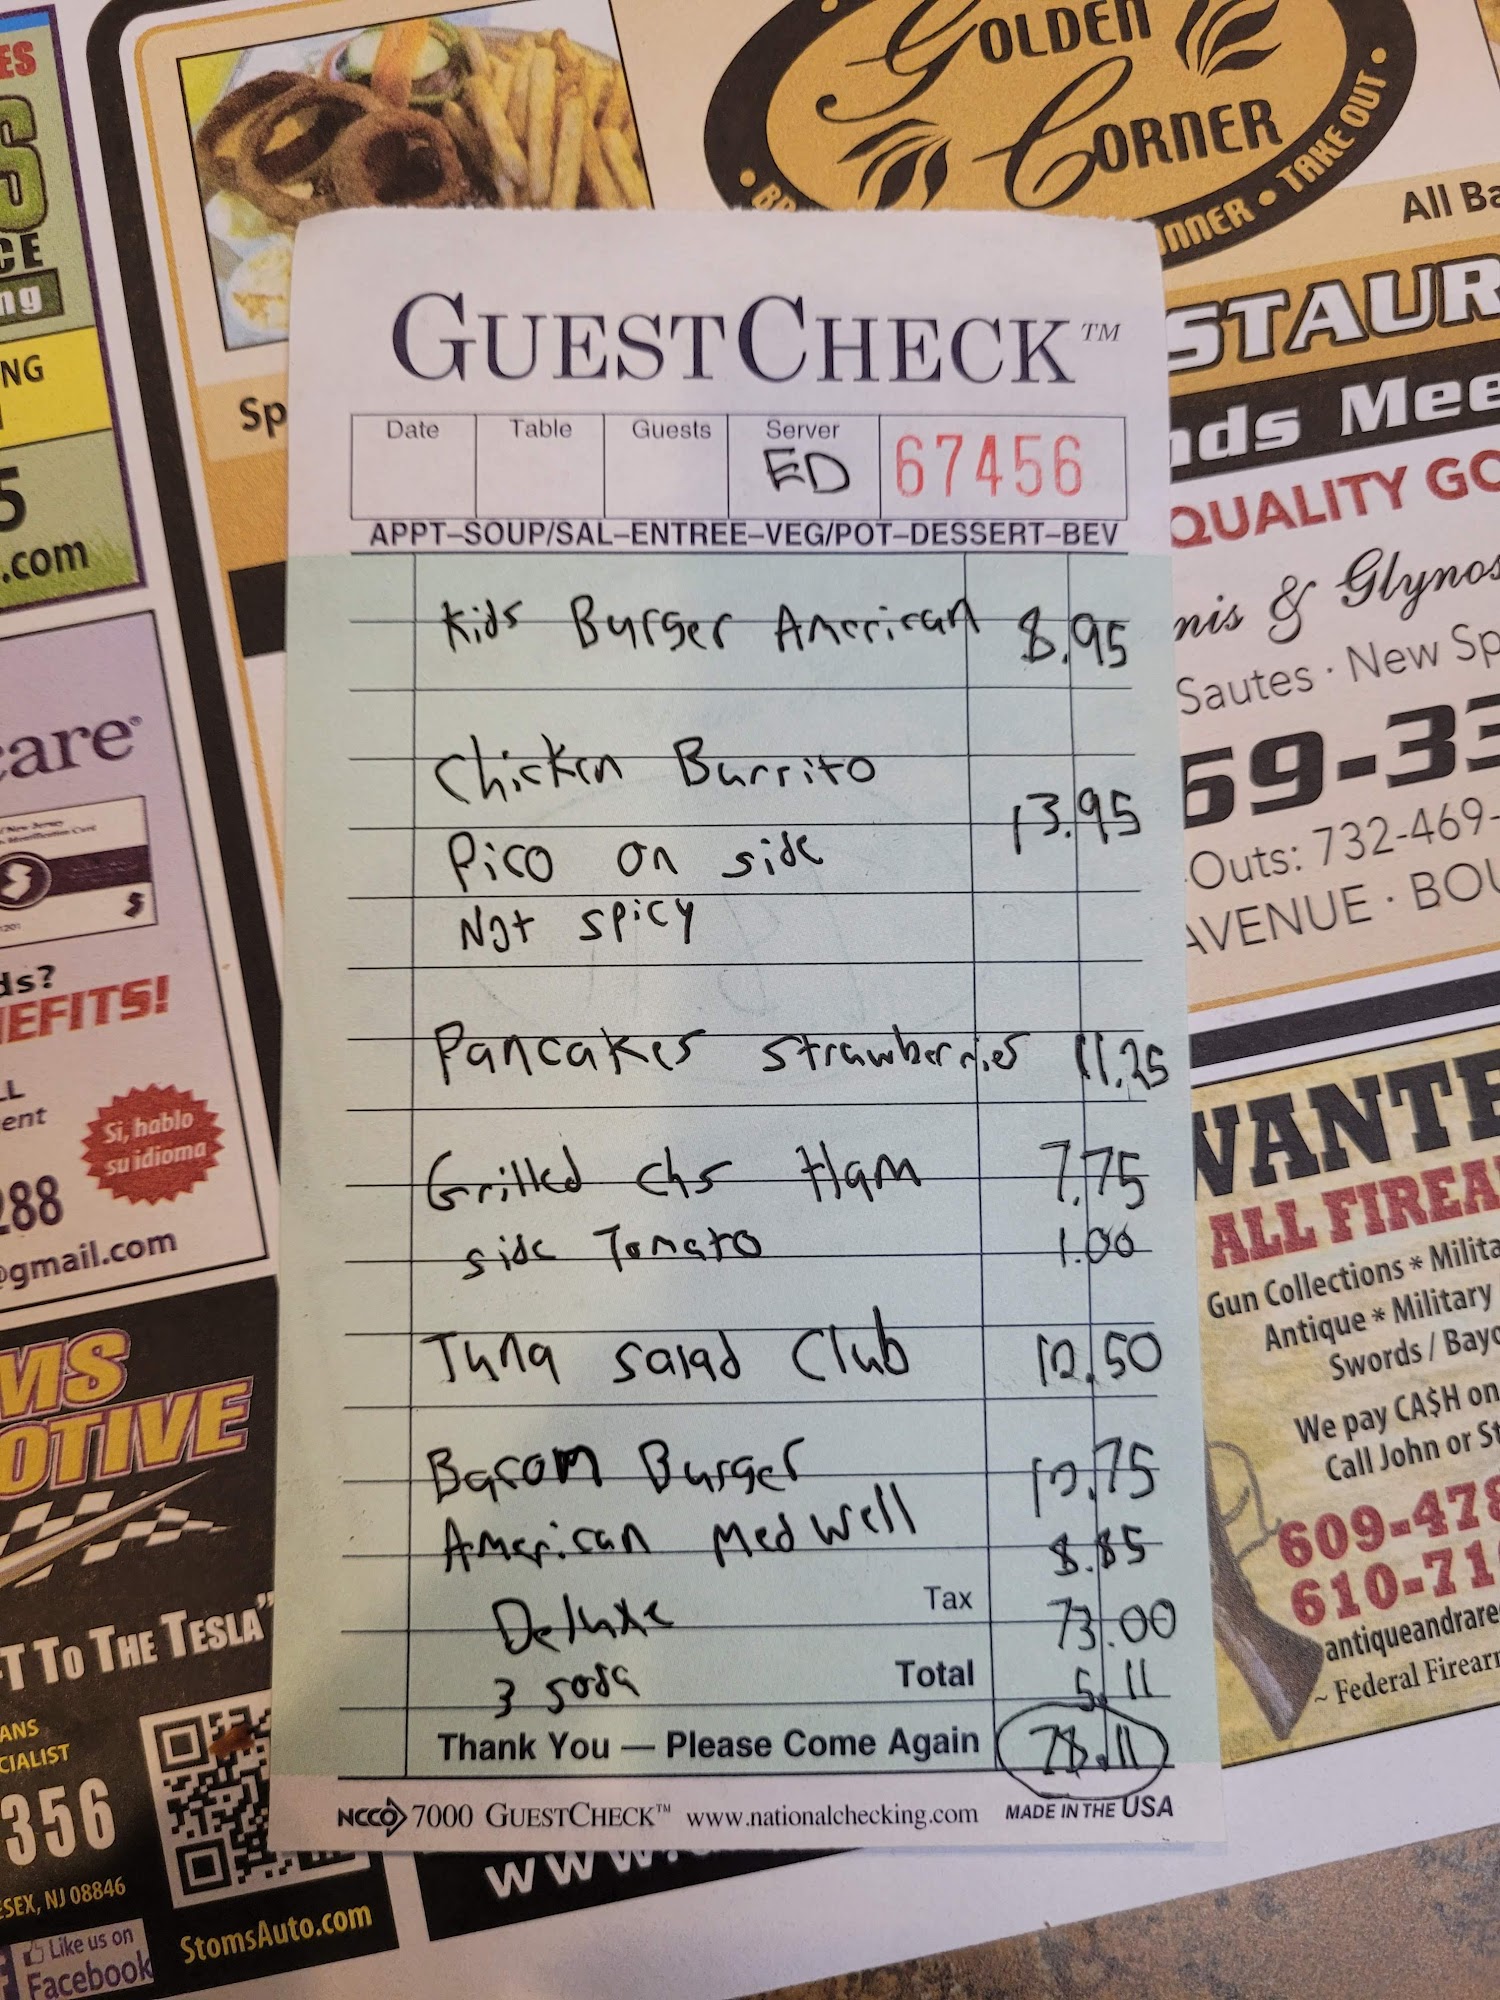 GOLDEN
CORNER
INNER • TAKE OUT •
All Ba
STAUR
nds Mee
QUALITY GO
nis & Glynos
Sautes · New Sp
69-33
Outs: 732-469-
AVENUE · BOU
ES
S
CE
ng
NG
5
.com
Sp
GUESTCHECK™
Date Table Guests Server
ED 67456
APPT–SOUP/SAL–ENTREE–VEG/POT–DESSERT–BEV
Kids Burger American 8.95
Chicken Burrito
13.95
Pico on side
Not spicy
Pancakes Strawberries 11.25
Grilled chs Ham 7.75
side Tomato 1.00
Tuna salad Club 12.50
Bacon Burger
American Med Well 8.85
Deluxe Tax 73.00
3 soda Total 5.11
Thank You — Please Come Again 78.11
NCCO 7000 GUESTCHECK™ www.nationalchecking.com MADE IN THE USA
care®
ds?
EFITS!
LL
ent
Si, hablo
su idioma
288
@gmail.com
MS
OTIVE
FT TO THE TESLA”
ANS
CIALIST
356
SEX, NJ 08846
StomsAuto.com
Like us on
Facebook
www.
WANTE
ALL FIREA
Gun Collections * Milita
Antique * Military
Swords / Bayo
We pay CA$H on
Call John or St
609-478
610-71
antiqueandrare
~ Federal Firearm